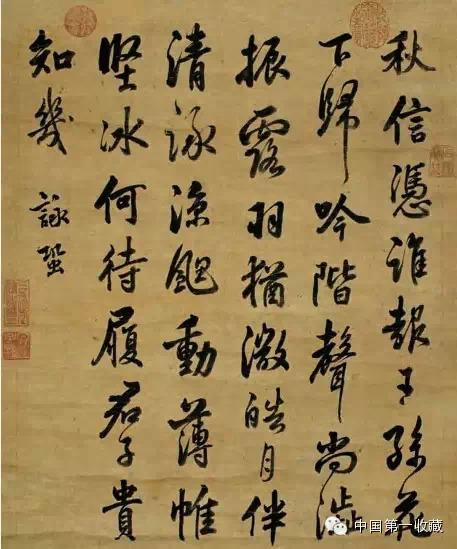 秋信憑誰報王孫花
下歸吟階聲尚澁
振露羽猶微皓月伴
清詠涼颸動薄帷
堅冰何待履君子貴
知幾 詠蛩
中国第一收藏